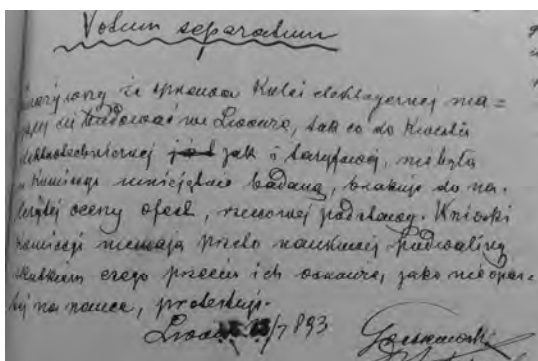 Votum separatum
że sprawa Kolei elektrycznej ma=
budować we Lwowie, tak co do kwestii
jak i taryfowej, nie była
w Komisyi umiejętnie badaną, brakuje do na=
leżytej oceny ofert, rzeczowej podstawy. Wnioski
Komisyi nie mają przeto naukowej podwaliny
skutkiem czego przeciw ich osnowie, jako nieopar=
tej na nauce, protestuję.
Lwów /7 893